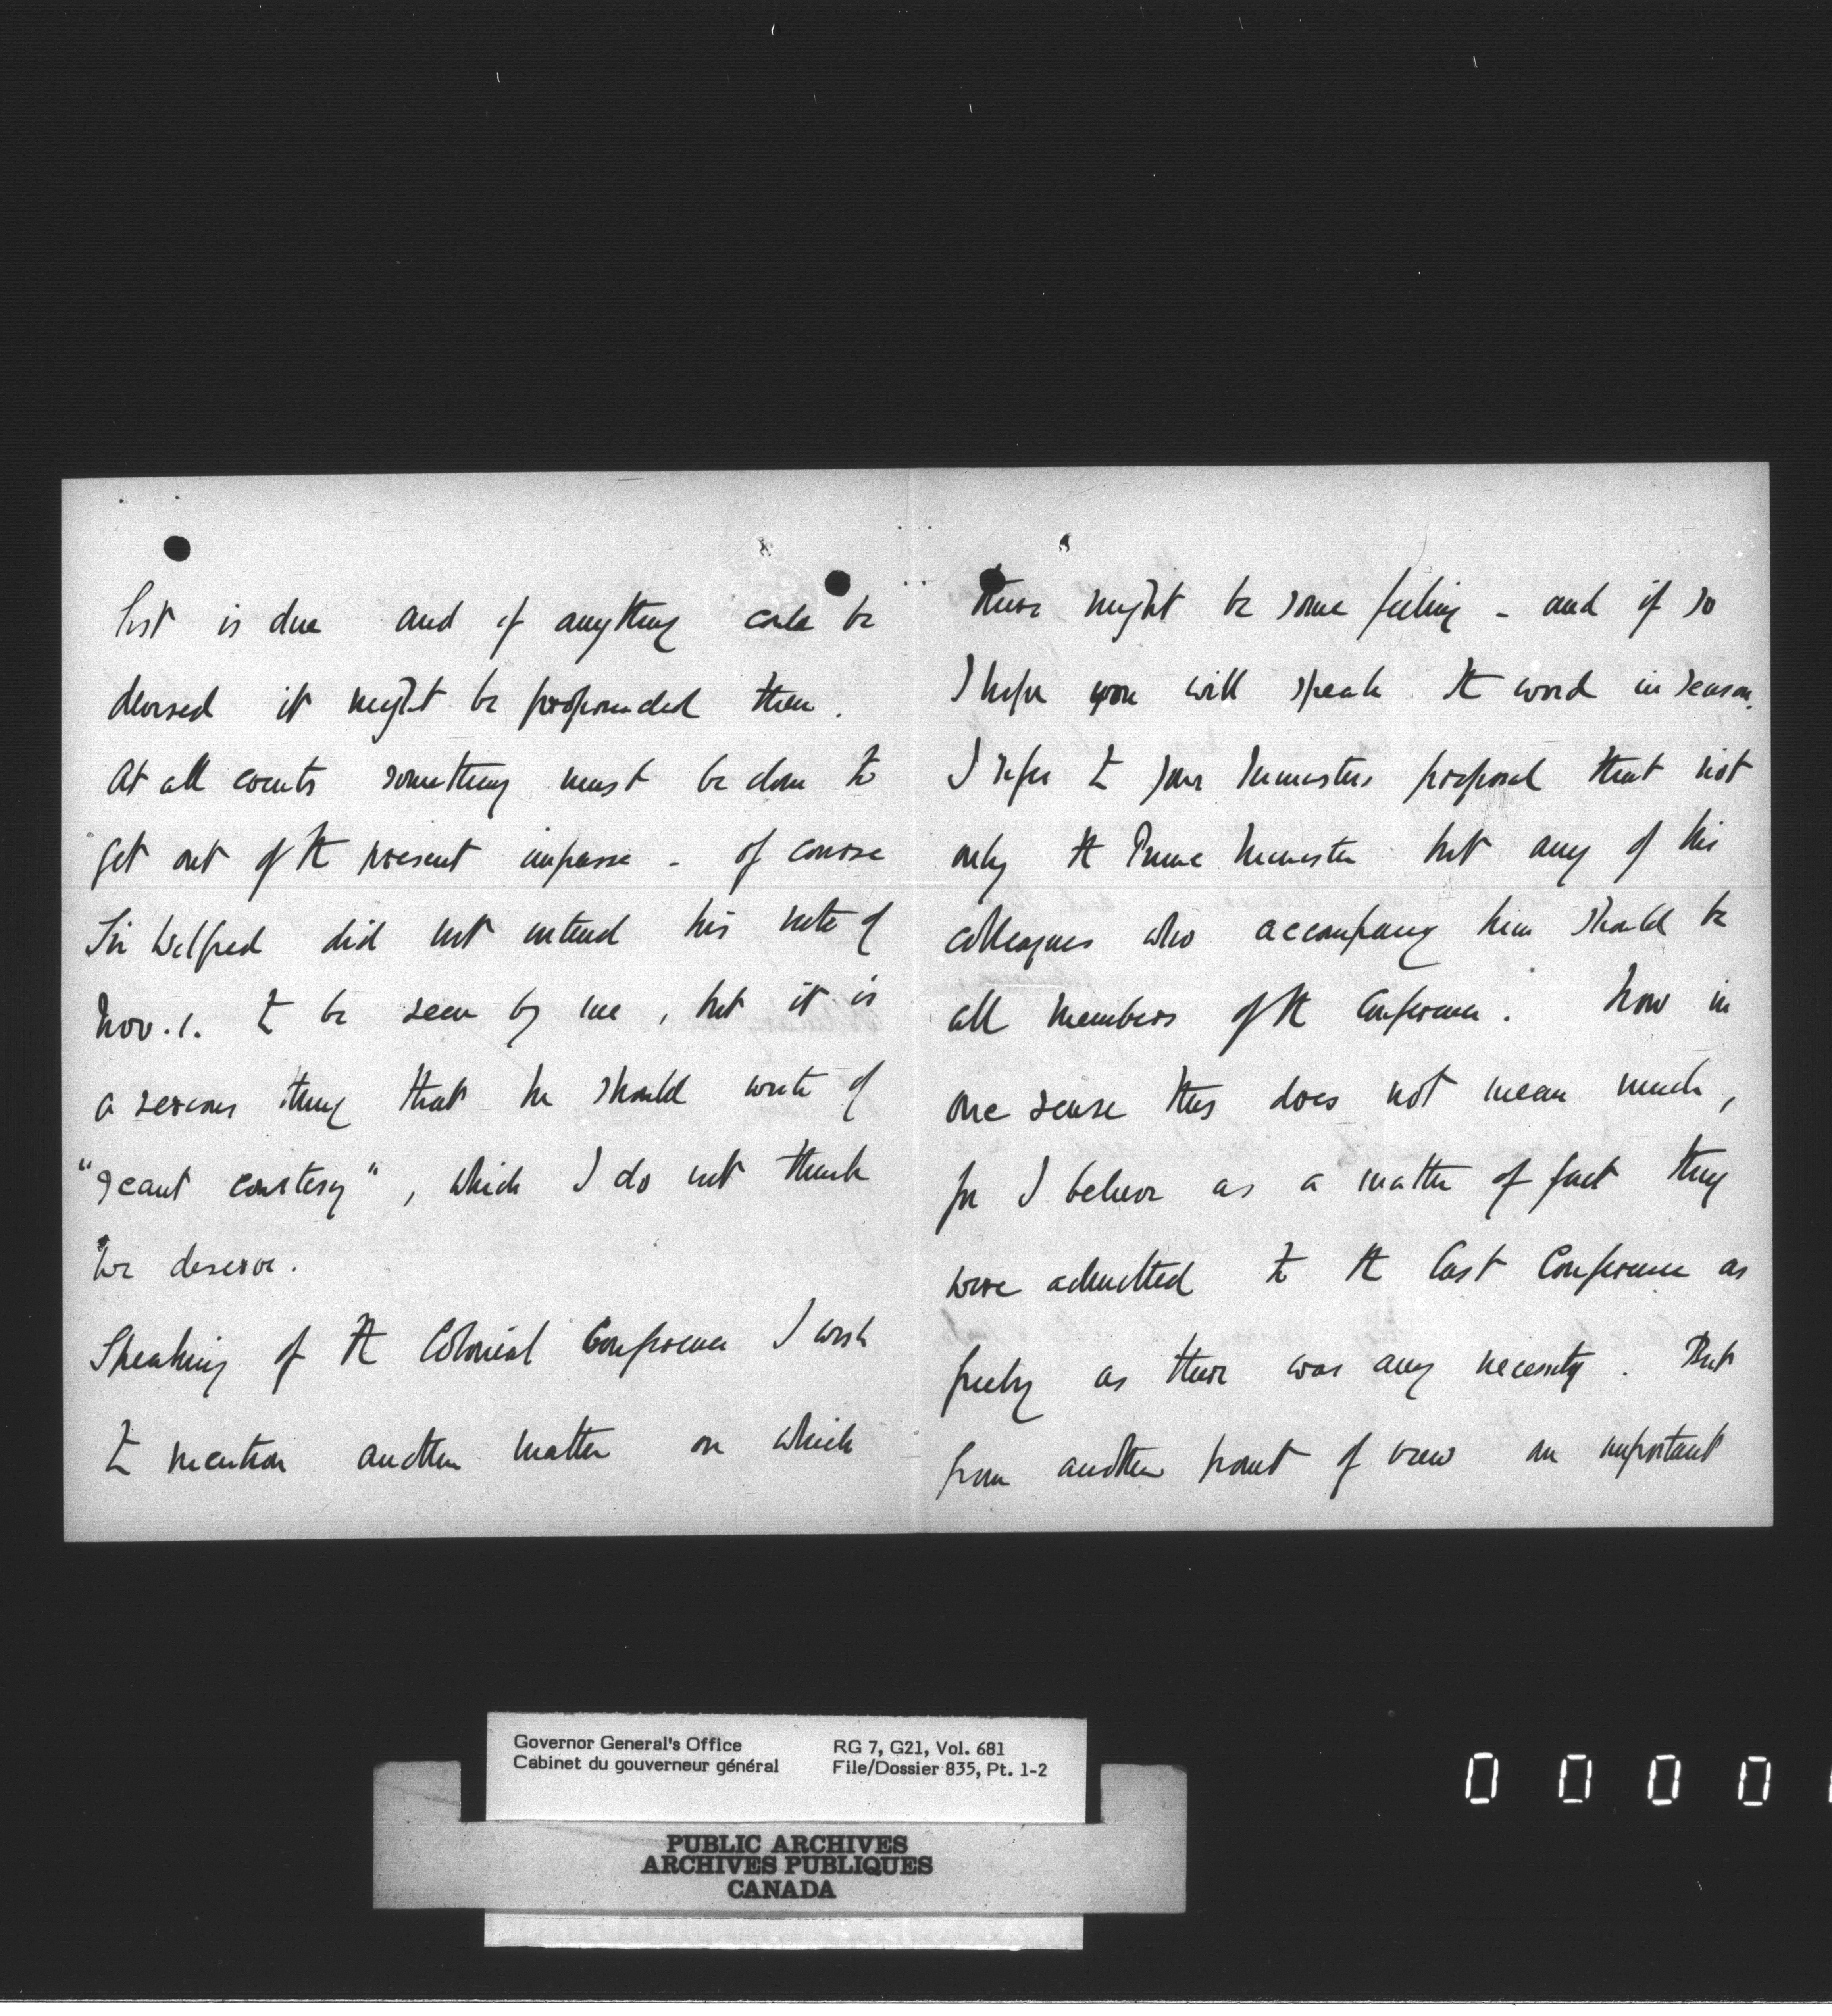 list is due and if anything could be
devised it might be propounded then.
At all events something must be done to
get out of the present impasse - of course
Sir Wilfred did not intend his note of
Nov. 1. to be seen by me, but it is
a serious thing that he should write of
"scant courtesy", which I do not think
we deserve.
Speaking of the Colonial Conference I wish
to mention another matter on which
there might be some feeling - and if so
I hope you will speak the word in season.
I refer to your Ministers proposal that not
only the Prime Minister but any of his
colleagues who accompany him should be
all members of the Conference. Now in
one sense this does not mean much,
for I believe as a matter of fact they
were admitted to the last Conference as
freely as there was any necessity. But
from another point of view an important
Governor General's Office
Cabinet du gouverneur général
RG 7, G21, Vol. 681
File/Dossier 835, Pt. 1-2
PUBLIC ARCHIVES
ARCHIVES PUBLIQUES
CANADA
0 0 0 0